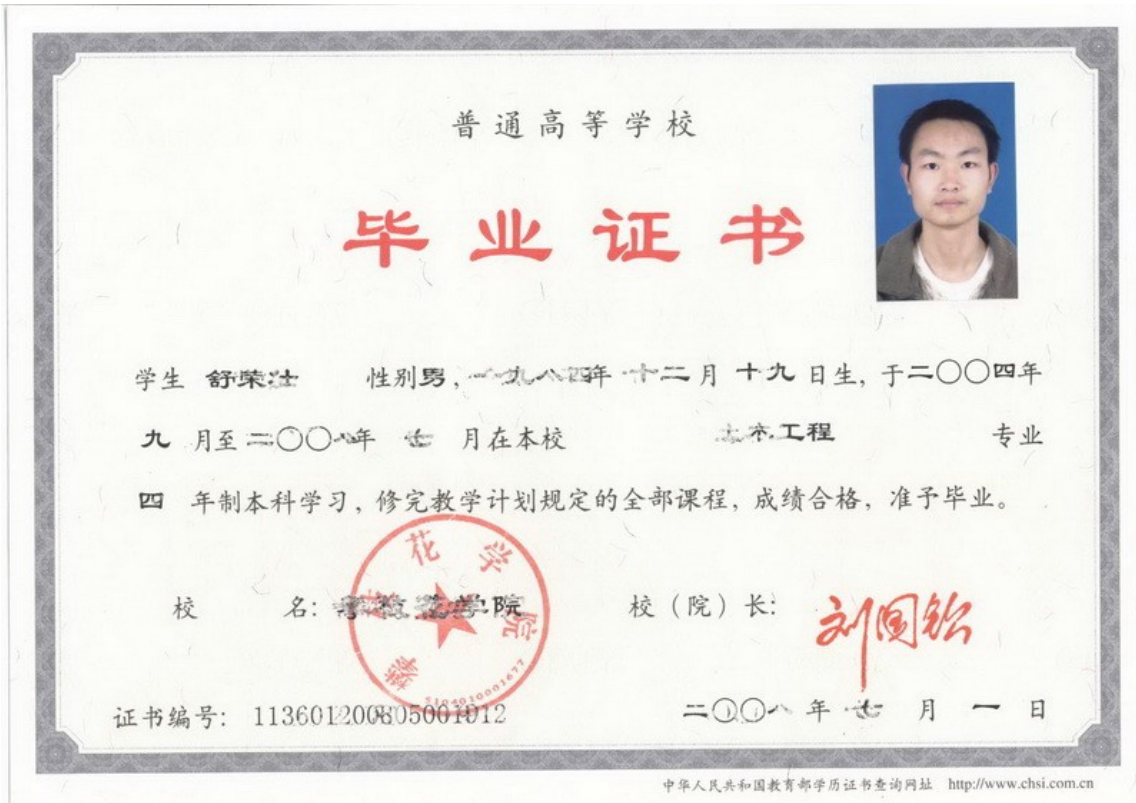 普通高等学校
毕业证书
学生 舒荣仕 性别男，一九八四年 十二月 十九 日生，于二〇〇四年
九 月至 二〇〇八年 七 月在本校 土木工程 专业
四 年制本科学习，修完教学计划规定的全部课程，成绩合格，准予毕业。
校 名：攀枝花学院 校（院）长：刘国钦
攀枝花学院
5104010001677
证书编号： 113601200805001912 二〇〇八 年 七 月 一 日
中华人民共和国教育部学历证书查询网址 http://www.chsi.com.cn